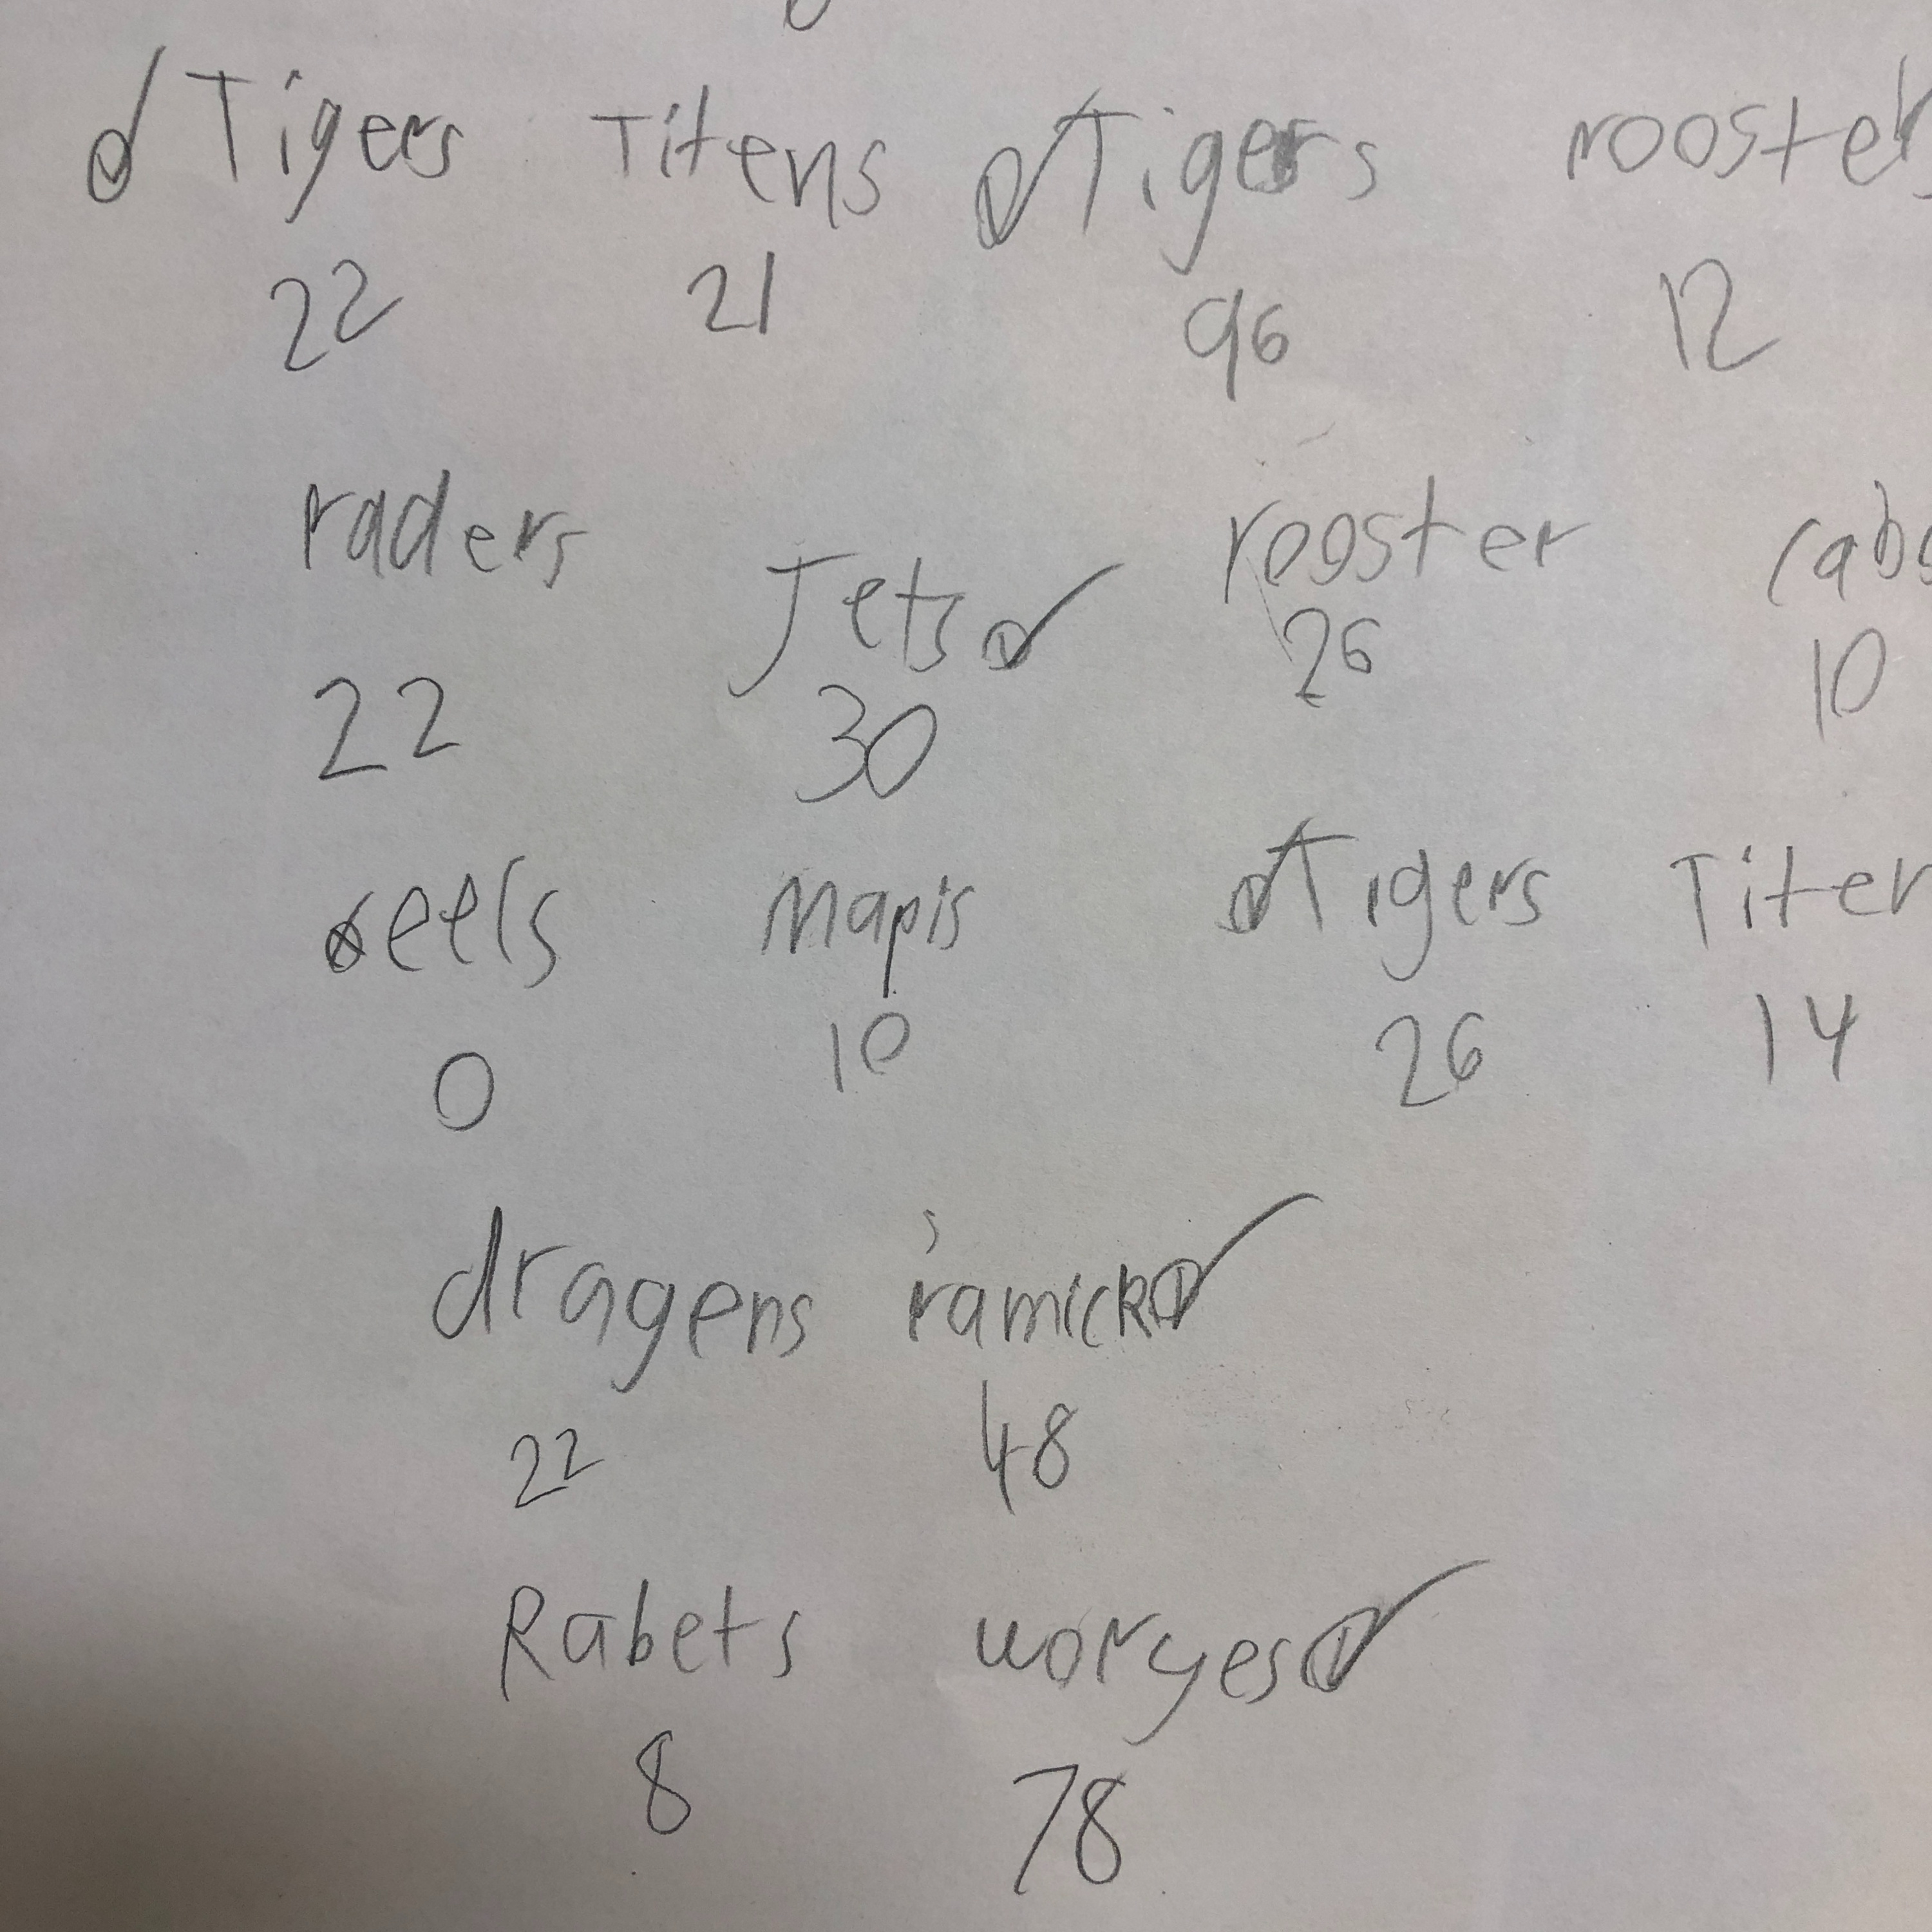 Tigers Titens Tigers rooster
22 21 96 12
raders Jets rooster
22 30 26 10
eels Mapis Tigers Titen
0 10 26 14
dragens ramick
22 48
Rabets woryes
8 78